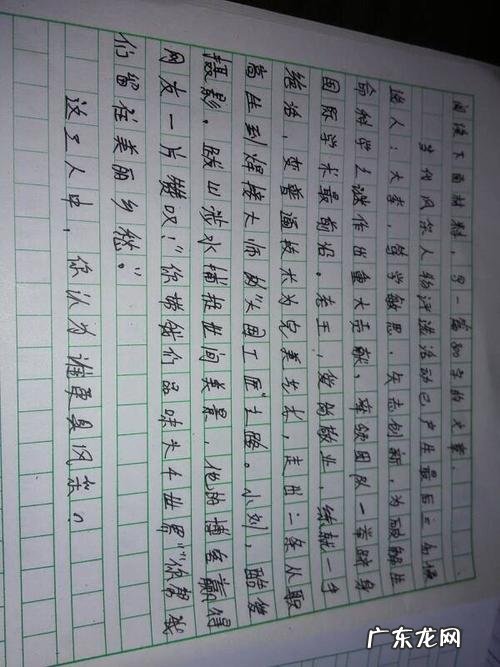 阅读下面材料,写一篇800字的文章.
当代风采人物评选活动已产生最后三名候
选人:大李,笃学敏思,矢志创新,为破解生
命科学之谜作出重大贡献,率领团队一举跻身
国际学术最前沿。老王,爱岗敬业,练就一手
绝活,变普通技术为完美艺术,走出一条从职
高生到焊接大师的"大国工匠"之路。小刘,酷爱
摄影,跋山涉水捕捉世间美景,他的博客赢得
网友一片赞叹:"你带我们品味大千世界""你帮我
们留住美丽乡愁。"
这三人中,你认为谁更具风采?
广东龙网